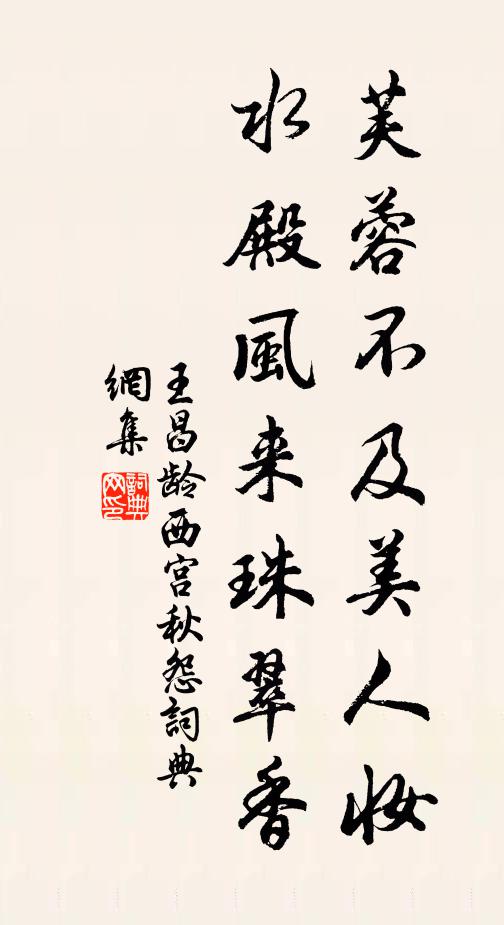 芙蓉不及美人妆
水殿風来珠翠香
王昌龄西宫秋怨詞典
網集
詞典网印